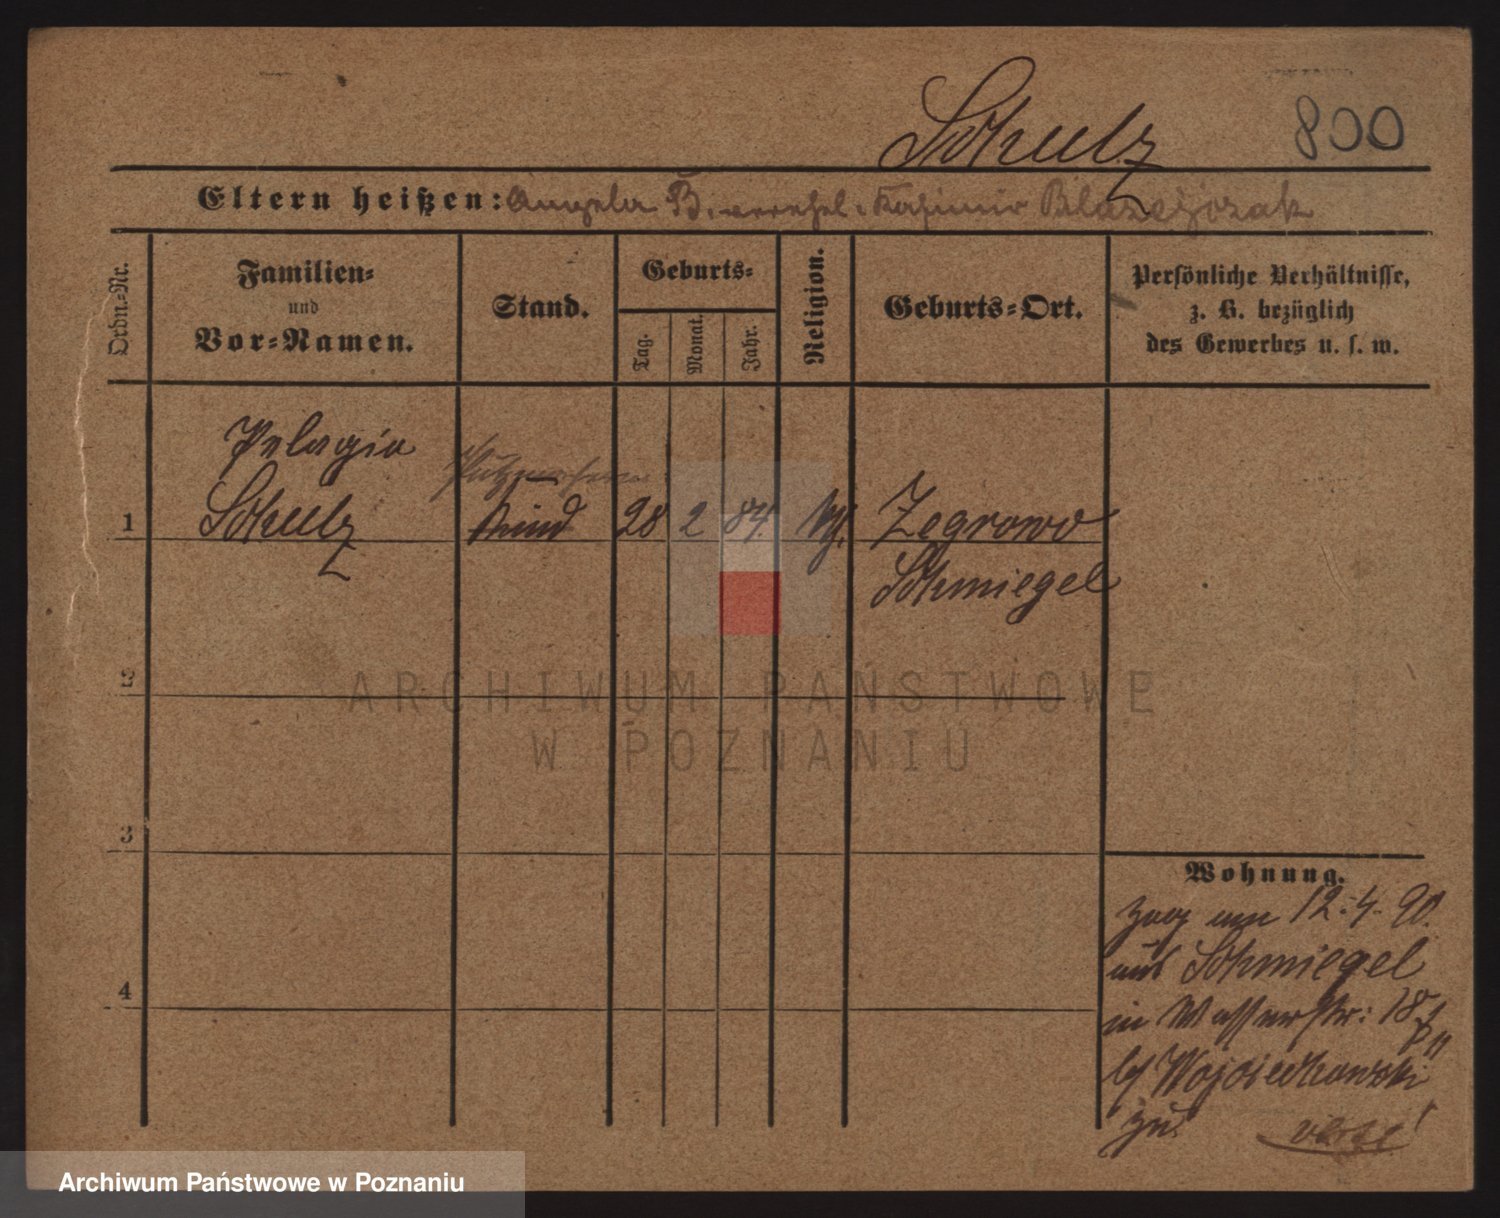 Schulz 800
Eltern heißen: Angela B. verehel. Kasimir Blazejczak
Ordn.-Nr.
Familien-
und
Vor-Namen.
Stand.
Geburts-
Tag.
Monat.
Jahr.
Religion.
Geburts-Ort.
Persönliche Verhältnisse,
z. B. bezüglich
des Gewerbes u. s. w.
Pelagia
1 Schulz Kind 28 2 84. kth. Zegrowo
Schmiegel
2
3
4
Wohnung.
zog am 12.4.90.
aus Schmiegel
in Wasserstr: 18
bei Wojciechowski
zu
ARCHIWUM PAŃSTWOWE
W POZNANIU
Archiwum Państwowe w Poznaniu